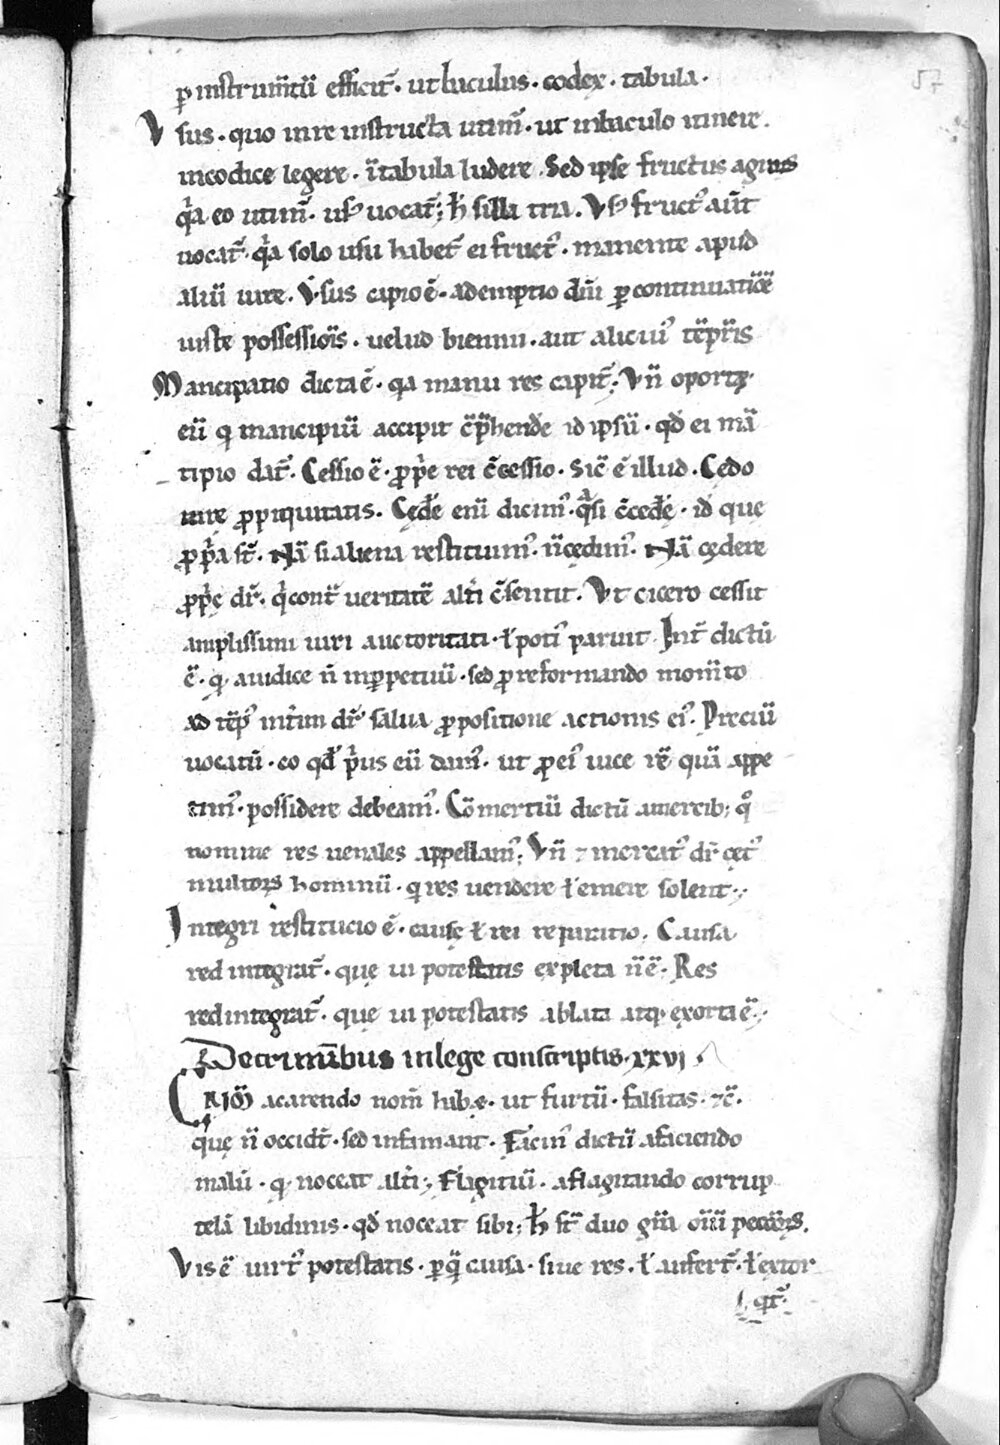 57
ꝑ instrum̄tū efficit᷑ · ut baculus · codex · tabula ·
Vsus · quo in re instructa utim᷑ · ut in baculo itinere ·
in codice legere · ī tabula ludere · Sed ipse fructus agrius
qͥa eo utim᷑ · us᷒ uocat᷑ ; h̄ s̄ illa tria . Vs᷒ fruct᷒ aūt
uocat᷑ · qͥa solo usu habet᷑ ei fruct᷒ · manente apud
aliū iure . Vsus capio ē · ademptio dn̄i ꝑ continuationē
iuste possessiōis · uelud biennii · aut alicui᷒ tēporis
Mancipatio dicta ē · qa manu res capit᷑ ; Vn̄ oportꝫ ·
eū q̇ mancipiū accipit cp̄hendere id ipsū · qd̄ ei mā
cipio dat᷑ . Cessio ē · ꝓpͥe rei c̄cessio · Sic̄ ē illud . Cedo
iure ꝓpinquitatis . Cędere enī dicim᷒ · qͣsi c̄cedere · id quę
ꝓpͥa st̄ . Nā si aliena restituim᷒ · n̄ cędim᷒ . Nā cędere
ꝓpͥe dr̄ · qͥ cont̄ ueritatē alt̄i c̄sentit . Vt cicero cessit
amplissimi uiri auctoritati · ł poti᷒ paruit . Int̄ dictū
ē · q̇ a iudice n̄ inꝑpetuū · sed ꝓ reformando mom̄to
ad tēp᷒ int̄im dr̄ · salua ꝓpositione actionis ei᷒ . Preciū
uocatū · eo qd̄ pͥus eū dam᷒ · ut ꝓ ei᷒ uice rē quā appe
tim᷒ · possidere debeam᷒ . Cōmertiū dictū a mercibꝫ qͦ
nomine res uenales appellam᷒ ; Vn̄ ⁊ mercat᷒ dr̄ cęt᷒
multorꝝ hominū · q̇ res uendere ł emere solent ;
Integri restitucio ē · cause ł rei reparatio . Causa
redintegrat᷑ · que ui potestatis expleta n̄ ē . Res
redintegrat᷑ · que ui potestatis ablata atqꝫ exorta ē .
De criminibus in lege conscriptis · xxvi ·
CRIM̄ a carendo nom̄ habꝫ · ut furtū · falsitas · ⁊c̄ ·
quę n̄ occidt̄ · sed infamant . Facin᷒ dictū a faciendo
malū · q̇ noceat alt̄i ; Flagitiū · a flagitando corrup
telā libidinis · qd̄ noceat sibi ; h̄ st̄ duo gn̄a oīū peccatorꝝ .
Vis ē uirt᷒ potestatis · ꝑ qͣ causa · siue res · ł aufert᷑ · ł extor
qt᷑ ·